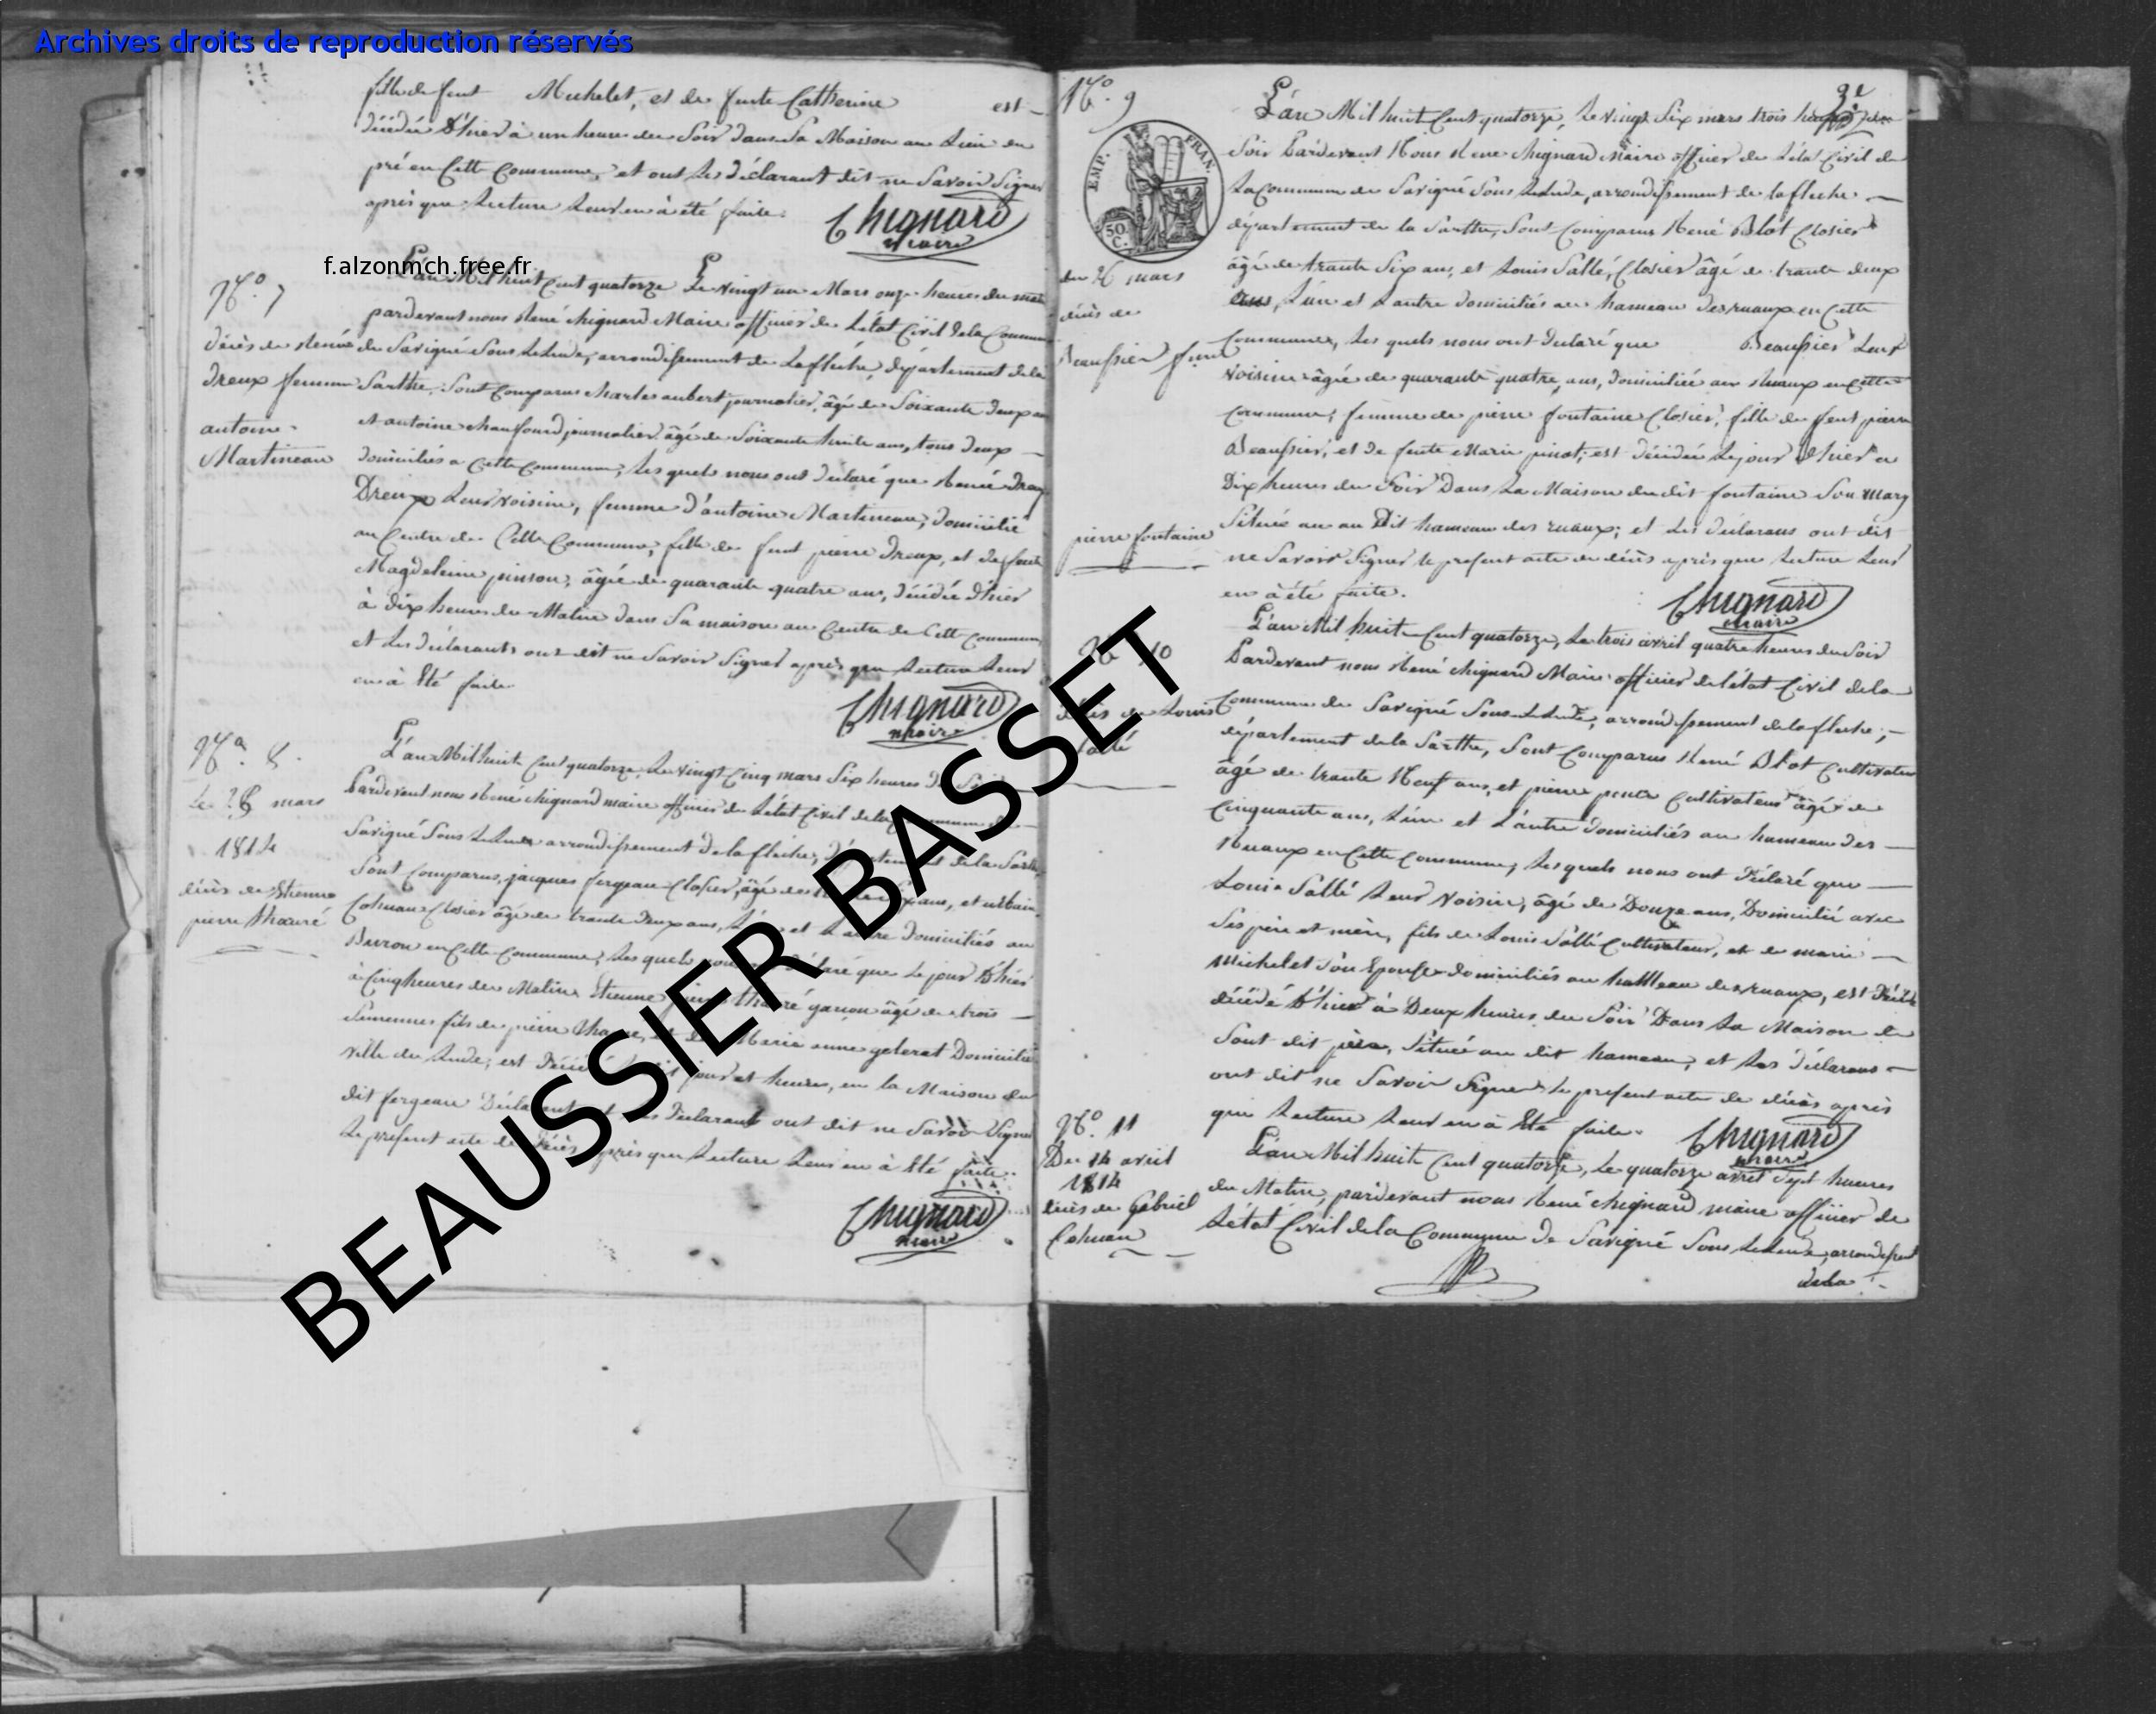 Archives droits de reproduction réservés
fille de feut Michelet, et de feute Catherine est
décédée d'hier à un heure du Soir dans Sa Maison au Lieu du
pré en Cette Commune, et ont les déclarant dit ne Savoir Signer
après que Lecture Leur en à été faite.
Chignard
maire
f.alzonmch.free.fr
N.º 7
décès de Renée
Dreux femme
antoine
Martineau
L'an Mil huit Cent quatorze Le vingt un Mars onze heures du
pardevant nous René Chignard Maire officier de L'état Civil de la Commune
de Savigné Sous Le Lude, arrondissement de La flèche, département de la
Sarthe, Sont Comparus Charles aubert journalier, âgé de Soixante deux ans
et antoine chaufourd journalier âgé de Soixante huite ans, tous deux
domiciliés a Cette Commune, les quels nous ont déclaré que Renée
Dreux Leur voisine, femme d'antoine Martineau, domicilié
au Centre de Cette Commune, fille de feut pierre Dreux, et de feute
Magdeleine pinson, âgée de quarante quatre ans, décédée d'hier
à dix heures du Matin dans Sa maison au Centre de Cette Commune
et Les déclarants ont dit ne Savoir Signer après que Lecture Leur
en à Eté faite
Chignard
maire
N.º 8.
Le mars
1814
décès de Etienne
pierre thouré
L'an Mil huit Cent quatorze, Le vingt Cinq mars Six heures du
Pardevant nous René Chignard maire officier de L'état Civil de la Commune de
Savigné Sous Le Lude arrondissement de la flèche, département de la Sarthe
Sont Comparus, jacques fergeau Closier, âgé de ans, et urbain
Cohuau Closier âgé de trante deux ans, L'un et L'autre domiciliés au
en Cette Commune, Les quels nous ont déclaré que Le jour d'hier
à Cinq heures du Matin Etienne pierre garçon âgé de trois
Semennes fils de pierre et de Marie anne Domiciliés
ville du Lude, est décédé jour et heure, en la Maison du
dit fergeau Déclarant et Les Déclarant ont dit ne Savoir Signer
Le présent acte de décès après que Lecture Leur en à Eté faite.
Chignard
maire
BEAUSSIER BASSET
N.º 9
EMP. FRAN.
50 C.
du 26 mars
décès de
Beaussier fme
pierre fontaine
L'an Mil huit Cent quatorze, Le vingt Six mars trois heures du
Soir Pardevant Nous René Chignard Maire officier de L'état Civil de
La Commune de Savigné Sous Le Lude, arrondissement de la fleche
département de la Sarthe, Sont Comparus René Blot Closier
âgé de trante Six ans, et Louis Sallé, Closier âgé de trante deux
ans, L'un et L'autre domiciliés au hameau des ruaux en Cette
Commune, Les quels nous ont déclaré que Beaussier Leur
voisine âgée de quarante quatre ans, domiciliée aux Ruaux en Cette
Commune, femme de pierre fontaine Closier, fille de feut pierre
Beaussier, et de feute Marie pinot, est décédée Le jour d'hier a
Dix heures du Soir Dans La Maison du dit fontaine Son Mary
Située au au Dit hameau des ruaux; et Les déclarans ont dit
ne Savoir Signer le présent acte de décès après que Lecture Leur
en à été faite.
Chignard
maire
N.º 10
décès de Louis
Sallé
L'an Mil huit Cent quatorze, Le trois avril quatre heures du Soir
Pardevant nous René Chignard Maire officier de l'état Civil de la
Commune de Savigné Sous Le Lude, arrondissement de la fleche;
département de la Sarthe, Sont Comparus René Blot Cultivateur
âgé de trante Neuf ans, et pierre Cultivateur âgé de
Cinquante ans, L'un et L'autre domiciliés au hameau des
Ruaux en Cette Commune, Les quels nous ont déclaré que
Louis Sallé Leur voisin, âgé de Douze ans, Domicilié avec
Ses père et mère, fils de Louis Sallé Cultivateur, et de marie
Michelet Son Epouse domiciliés au hameau des ruaux, est
décédé d'hier à Deux heures du Soir Dans La Maison de
Sont dit père, Située au dit hameau, et Les Déclarans
ont dit ne Savoir Signer le présent acte de décès après
que Lecture Leur en à Eté faite.
Chignard
maire
N.º 11
Du 14 avril
1814
décès de Gabriel
Cohuau
L'an Mil huit Cent quatorze, Le quatorze avril Sept heures
du Matin, pardevant nous René Chignard maire officier de
L'état Civil de la Commune de Savigné Sous Le Lude, arrondissement
de la